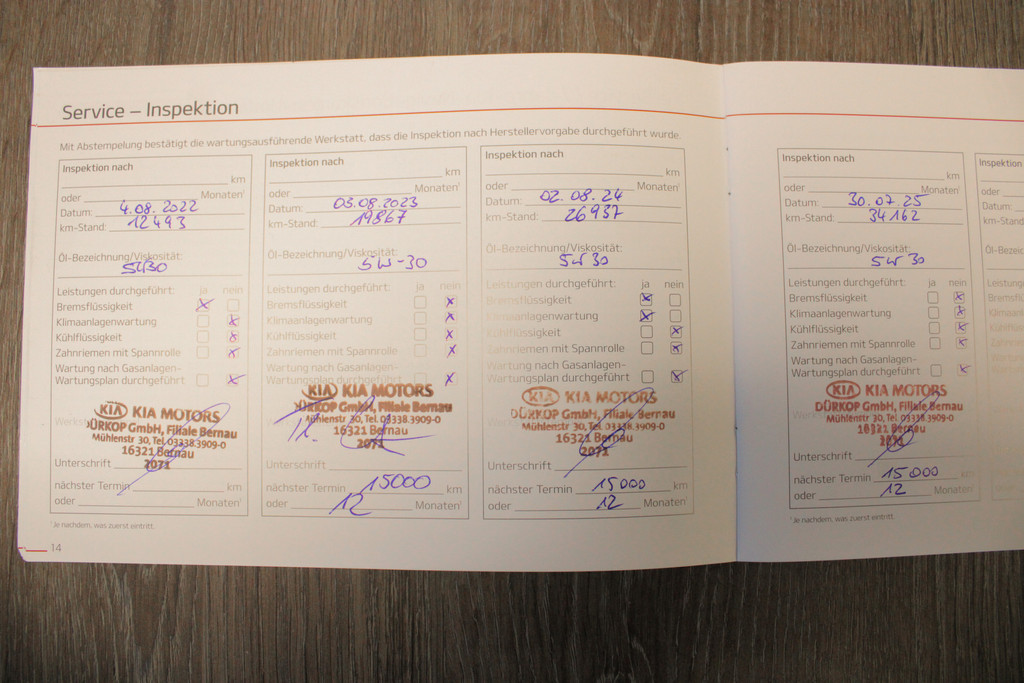 Service – Inspektion
Mit Abstempelung bestätigt die wartungsausführende Werkstatt, dass die Inspektion nach Herstellervorgabe durchgeführt wurde.
Inspektion nach
km
oder Monaten¹
Datum: 4.08.2022
km-Stand: 12493
Öl-Bezeichnung/Viskosität:
5W30
Leistungen durchgeführt: ja nein
Bremsflüssigkeit x
Klimaanlagenwartung x
Kühlflüssigkeit x
Zahnriemen mit Spannrolle x
Wartung nach Gasanlagen-
Wartungsplan durchgeführt x
KIA KIA MOTORS
DÜRKOP GmbH, Filiale Bernau
Mühlenstr 30, Tel. 03338.3909-0
16321 Bernau
2071
Unterschrift
nächster Termin km
oder Monaten¹
Inspektion nach
km
oder Monaten¹
Datum: 03.08.2023
km-Stand: 19867
Öl-Bezeichnung/Viskosität:
5W-30
Leistungen durchgeführt: ja nein
Bremsflüssigkeit x
Klimaanlagenwartung x
Kühlflüssigkeit x
Zahnriemen mit Spannrolle x
Wartung nach Gasanlagen-
Wartungsplan durchgeführt x
KIA KIA MOTORS
DÜRKOP GmbH, Filiale Bernau
Mühlenstr 30, Tel. 03338.3909-0
16321 Bernau
2071
Unterschrift
nächster Termin 15000 km
oder 12 Monaten¹
Inspektion nach
km
oder Monaten¹
Datum: 02.08.24
km-Stand: 26937
Öl-Bezeichnung/Viskosität:
5W30
Leistungen durchgeführt: ja nein
Bremsflüssigkeit x
Klimaanlagenwartung x
Kühlflüssigkeit x
Zahnriemen mit Spannrolle x
Wartung nach Gasanlagen-
Wartungsplan durchgeführt x
KIA KIA MOTORS
DÜRKOP GmbH, Filiale Bernau
Mühlenstr 30, Tel. 03338.3909-0
16321 Bernau
2071
Unterschrift
nächster Termin 15000 km
oder 12 Monaten¹
¹Je nachdem, was zuerst eintritt.
14
Inspektion nach
km
oder Monaten¹
Datum: 30.07.25
km-Stand: 34162
Öl-Bezeichnung/Viskosität:
5W30
Leistungen durchgeführt: ja nein
Bremsflüssigkeit x
Klimaanlagenwartung x
Kühlflüssigkeit x
Zahnriemen mit Spannrolle x
Wartung nach Gasanlagen-
Wartungsplan durchgeführt x
KIA KIA MOTORS
DÜRKOP GmbH, Filiale Bernau
Mühlenstr 30, Tel. 03338.3909-0
16321 Bernau
2071
Unterschrift
nächster Termin 15000 km
oder 12 Monaten¹
¹Je nachdem, was zuerst eintritt.
Inspektion
oder
Datum:
km-Stand